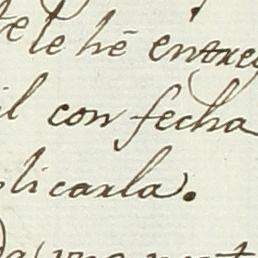 te le hē entreg
il con fecha
plicarla.